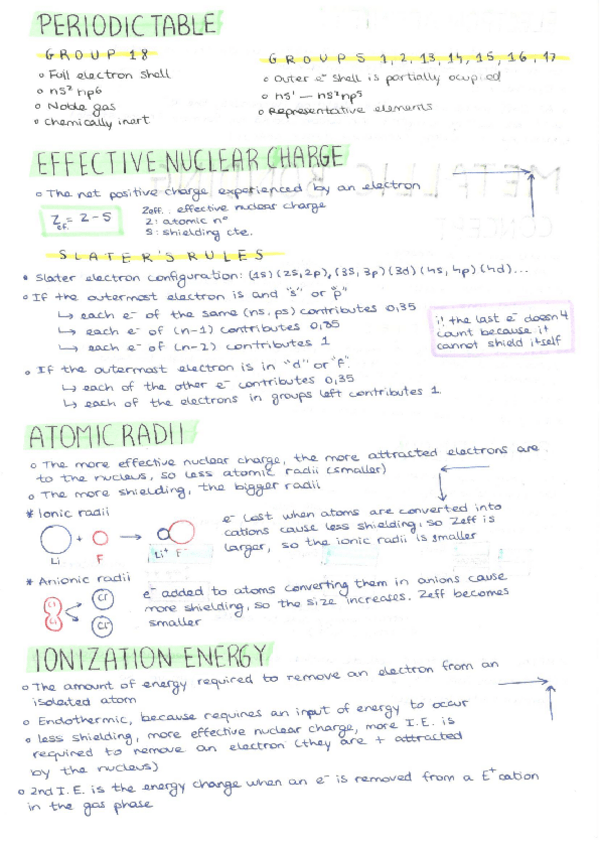 PERIODIC TABLE
GROUP 18
o Full electron shell
o ns² np6
o Noble gas
o Chemically inert
GROUPS 1, 2, 13, 14, 15, 16, 17
o Outer e⁻ shell is partially ocupied
o ns¹ — ns²np⁵
o Representative elements
EFFECTIVE NUCLEAR CHARGE
o The net positive charge experienced by an electron
Zef. = Z - S
Zeff.: effective nuclear charge
Z: atomic nº
S: shielding cte.
SLATER'S RULES
• Slater electron configuration: (1s) (2s, 2p), (3s, 3p) (3d) (4s, 4p) (4d)...
o If the outermost electron is and "s" or "p"
↳ each e⁻ of the same (ns, ps) contributes 0,35
↳ each e⁻ of (n-1) contributes 0,85
↳ each e⁻ of (n-2) contributes 1
¡! the last e⁻ doesn't
count because it
cannot shield itself
o If the outermost electron is in "d" or "f".
↳ each of the other e⁻ contributes 0,35
↳ each of the electrons in groups left contributes 1.
ATOMIC RADII
o The more effective nuclear charge, the more attracted electrons are
to the nucleus, so less atomic radii (smaller)
o The more shielding, the bigger radii
* Ionic radii
Li + F → Li⁺ F⁻
e⁻ lost when atoms are converted into
cations cause less shielding, so Zeff is
larger, so the ionic radii is smaller
* Anionic radii
Cl Cl Cl⁻ Cl⁻
e⁻ added to atoms converting them in anions cause
more shielding, so the size increases. Zeff becomes
smaller
IONIZATION ENERGY
o The amount of energy required to remove an electron from an
isolated atom
o Endothermic, because requires an input of energy to occur
o less shielding, more effective nuclear charge, more I.E. is
required to remove an electron (they are + attracted
by the nucleus)
o 2nd I.E. is the energy change when an e⁻ is removed from a E⁺ cation
in the gas phase